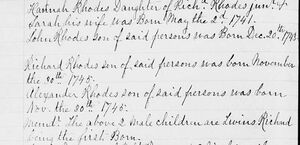 Hannah Rhodes Daughter of Rich. Rhodes Junr. &
Sarah his wife was Born May the 2d. 1741.
John Rhodes son of said persons was Born Dec. 20th 1743
Richard Rhodes son of said persons was born November
the 30th 1745.
Alexander Rhodes son of said persons was born
Nov. the 30th 1745.
The above 2 male children are twins Richard
being the first Born.